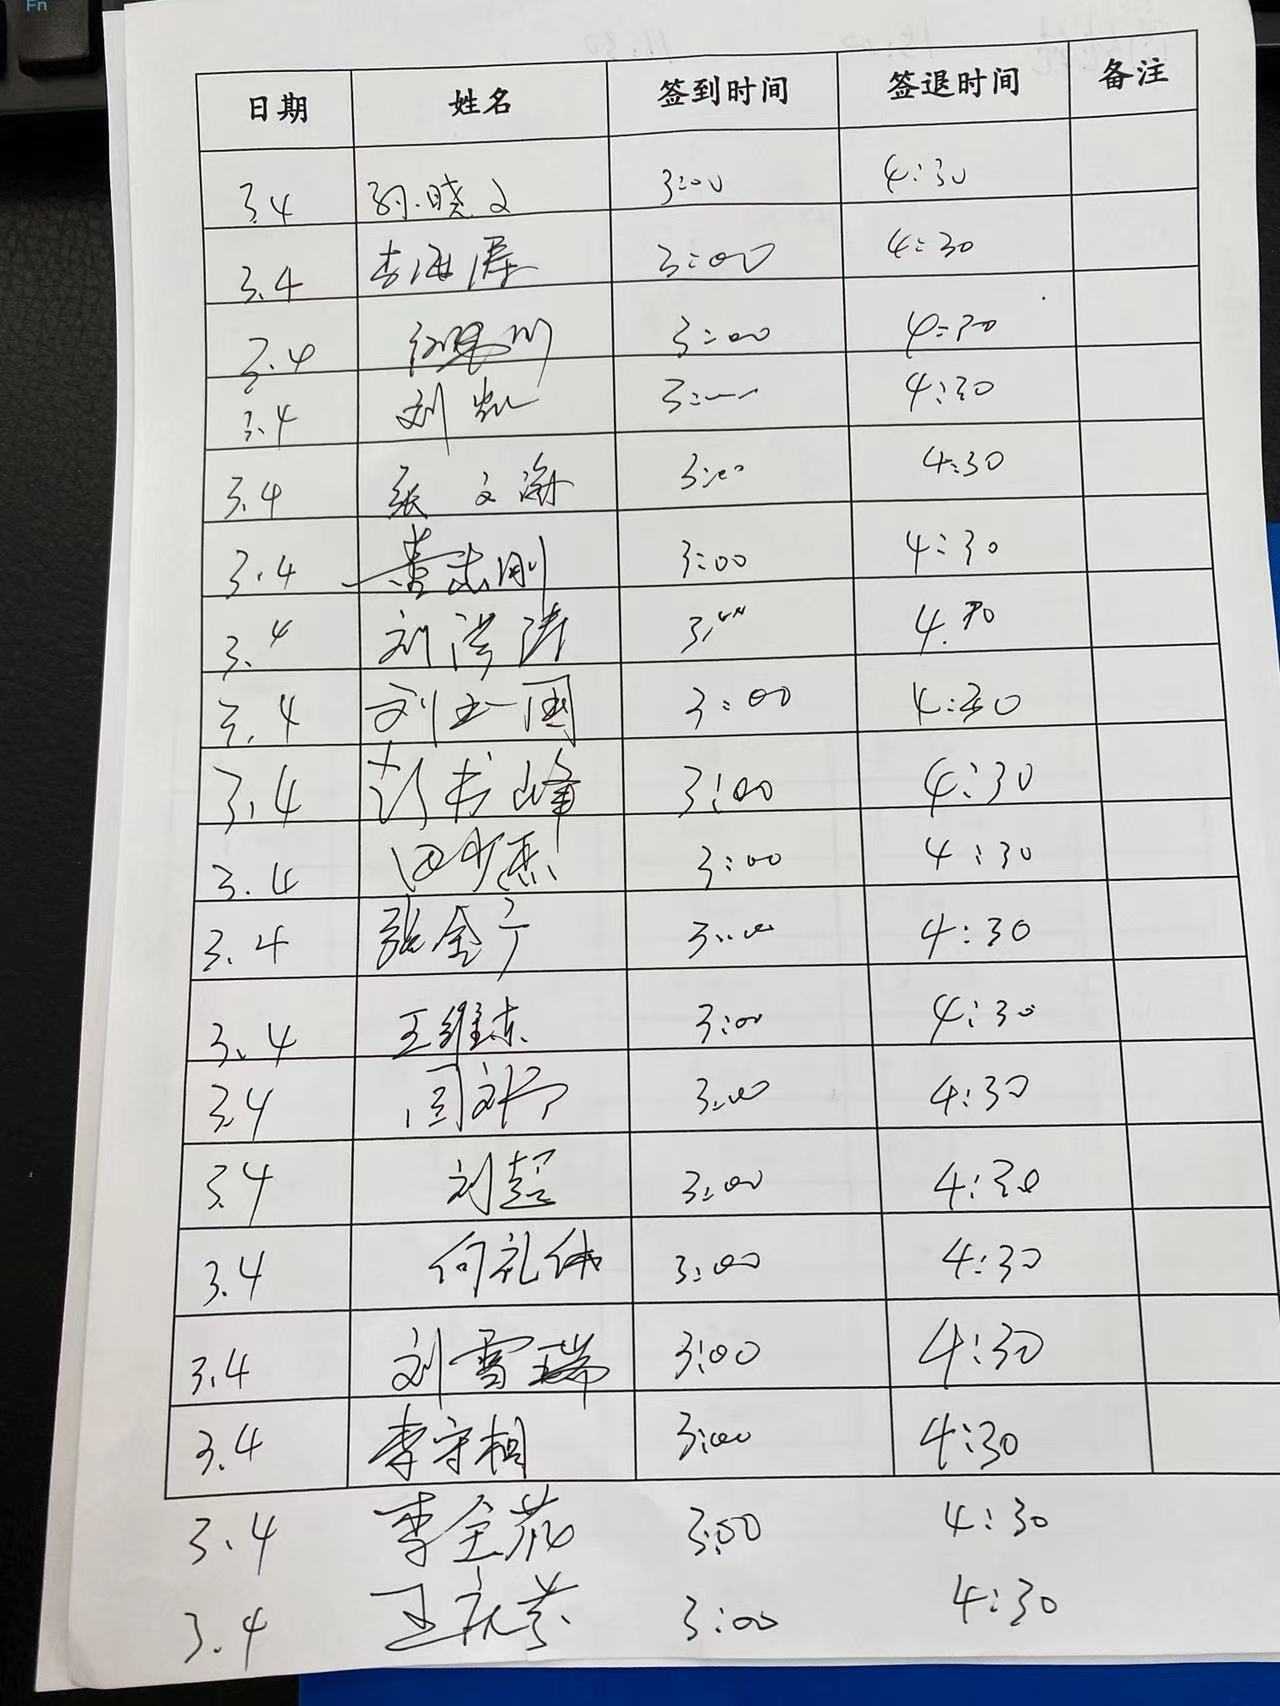 Fn
日期 姓名 签到时间 签退时间 备注
3.4 孙晓文 3:00 4:30
3.4 李海涛 3:00 4:30
3.4 3:00 4:30
3.4 刘凯 3:00 4:30
3.4 张文瀚 3:00 4:30
3.4 黄志刚 3:00 4:30
3.4 刘洪涛 3:00 4:30
3.4 刘玉国 3:00 4:30
3.4 彭书峰 3:00 4:30
3.4 田少杰 3:00 4:30
3.4 张金亭 3:00 4:30
3.4 王维东 3:00 4:30
3.4 3:00 4:30
3.4 刘超 3:00 4:30
3.4 何礼伟 3:00 4:30
3.4 刘雪瑞 3:00 4:30
3.4 李守相 3:00 4:30
3.4 李全花 3:00 4:30
3.4 3:00 4:30